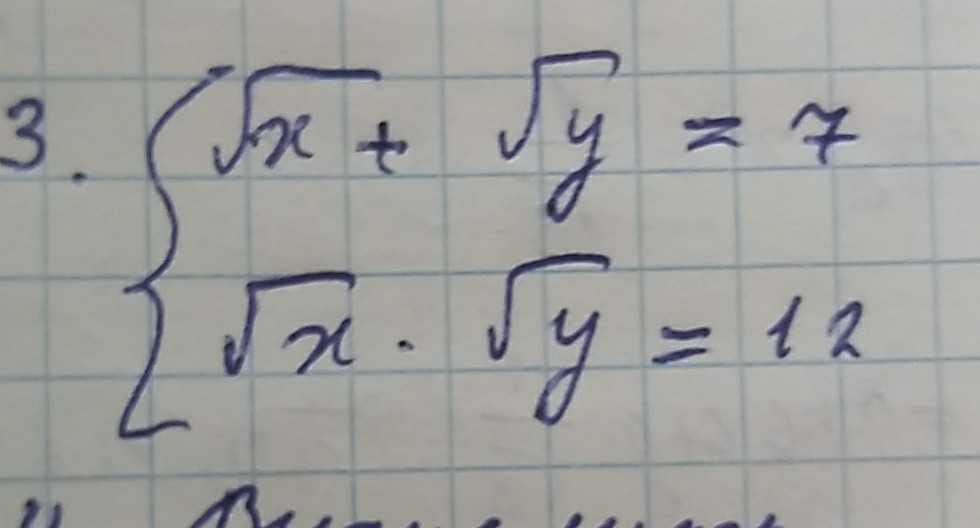 3. { √x + √y = 7
√x · √y = 12